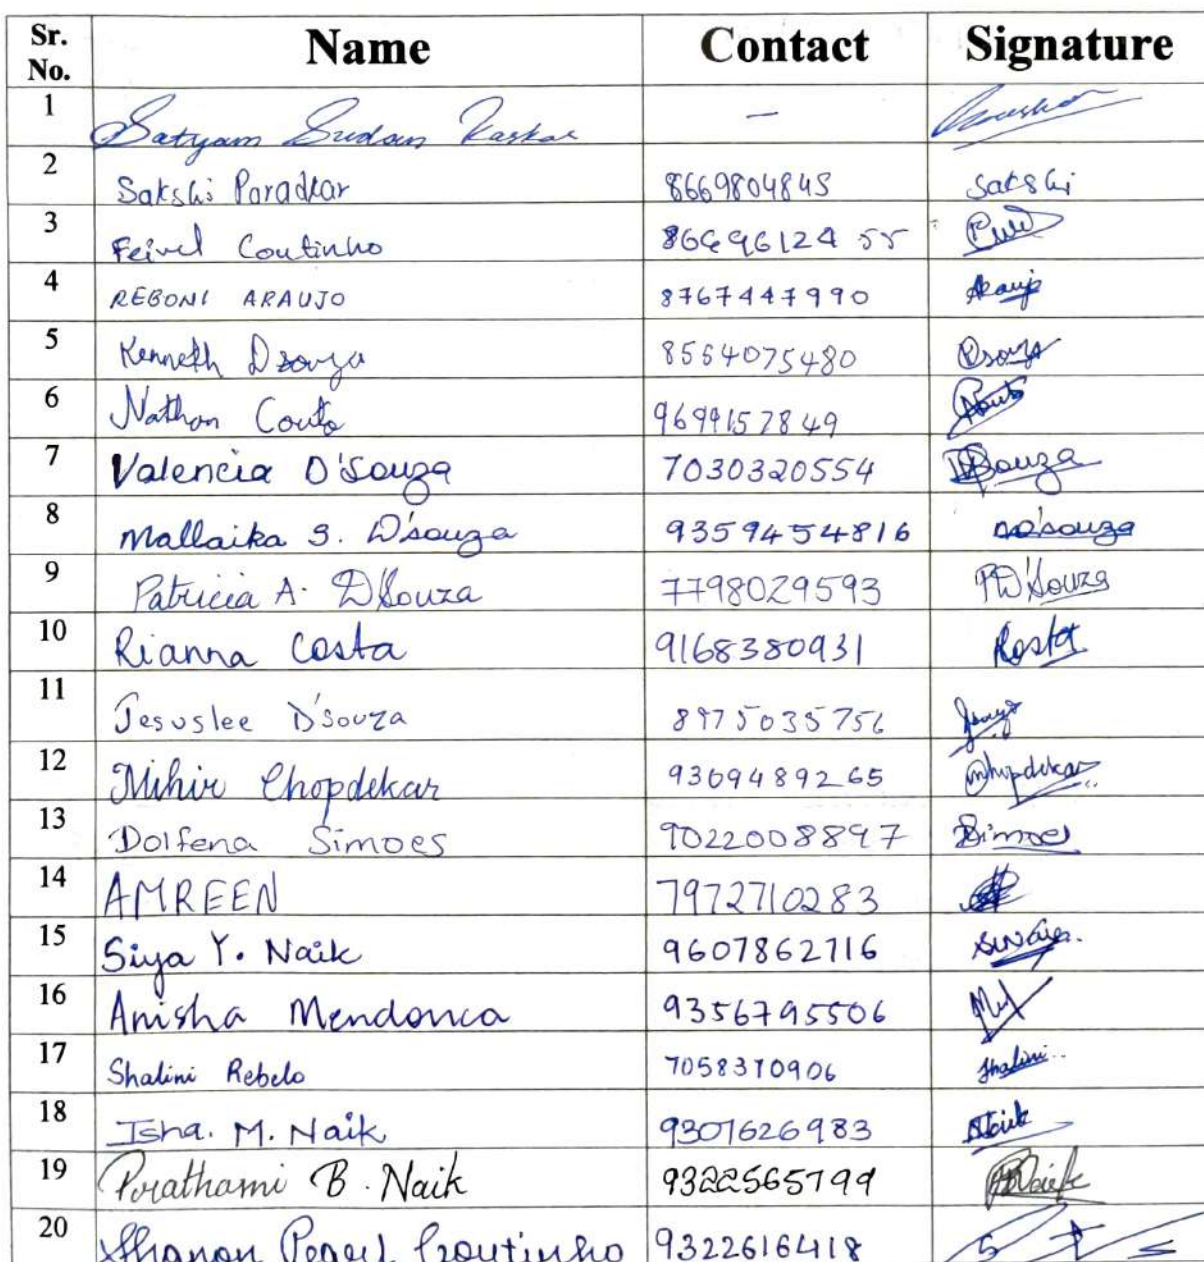 Sr. No. Name Contact Signature
1 Satyam Sudan —
2 Sakshi Paradkar 8669804845 Sakshi
3 Feivel Coutinho
4 REBONI ARAUJO 8767447990 Araujo
5 Kenneth Dsouza 8554075480 Dsouza
6 Nathan Couto 9699157849 Couto
7 Valencia D'Souza 7030320554 VDSouza
8 Mallaika S. D'souza 9359454816 MD'souza
9 Patricia A. D'Souza 7798029593 PD'Souza
10 Rianna Costa 9168380931 Rosta
11 Jesuslee D'Souza 8975035756
12 Mihir Chopdekar 9309489265 Mhopdekar
13 Dolfena Simoes 9022008897 DSimoes
14 AMREEN 7972710283
15 Siya Y. Naik 9607862716
16 Anisha Mendonca 9356795506
17 Shalini Rebelo 7058370906 Shalini
18 Isha. M. Naik 9307626983 Naik
19 Prathami B. Naik 9322565799 PBNaik
20 Shanon Pearl Coutinho 9322616418